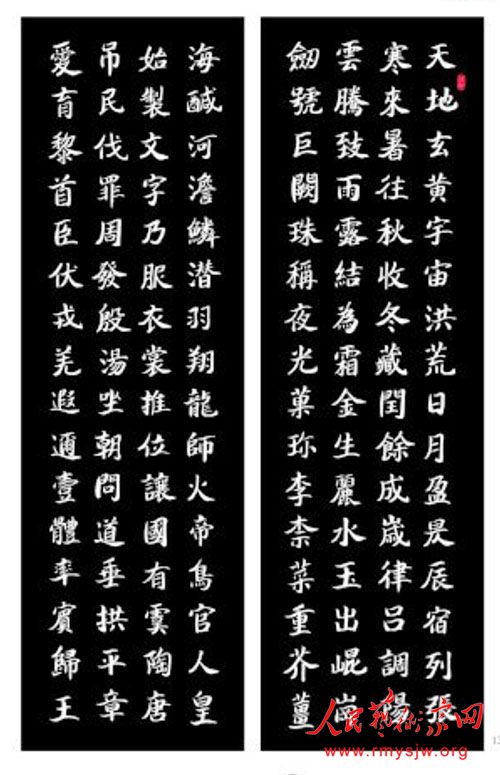 天地玄黄宇宙洪荒日月盈昃辰宿列張
寒來暑往秋收冬藏閏餘成歲律吕調陽
雲騰致雨露結為霜金生麗水玉出崐崗
劒號巨闕珠稱夜光菓珎李柰菜重芥薑
海醎河澹鱗潜羽翔龍師火帝鳥官人皇
始製文字乃服衣裳推位讓國有虞陶唐
吊民伐罪周發殷湯坐朝問道垂拱平章
愛育黎首臣伏戎羌遐邇壹體率賓歸王
人民藝術家网
www.rmysjw.org